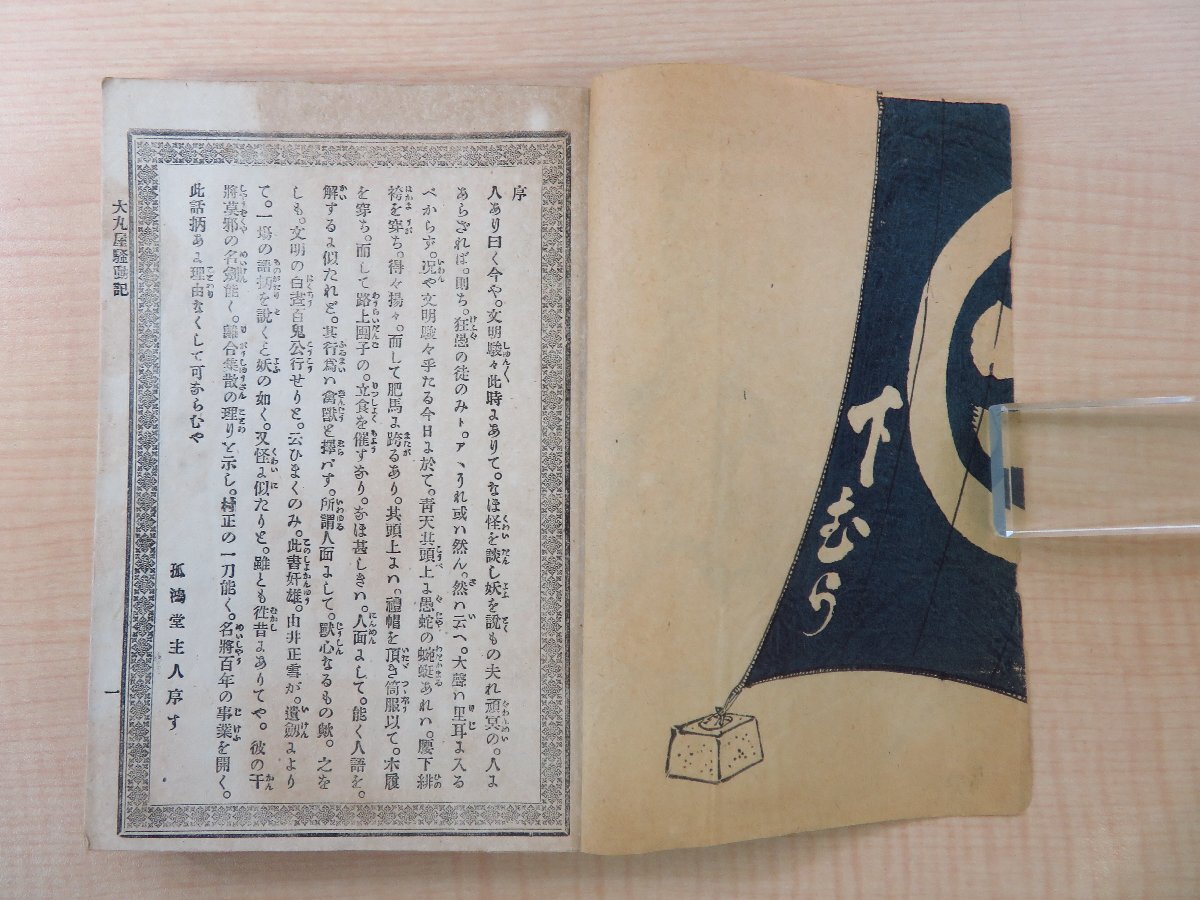 下むら
序
人あり曰く今や。文明駿々此時にありて。なほ怪を談し妖を説もの夫れ頑冥の。人に
あらざれば。則ち。狂愚の徒のみト。アヽうれ或ハ然ん。然ハ云へ。大聲ハ里耳に入る
べからず。况や文明駿々乎たる今日に於て。靑天其頭上に愚蛇の蜿蜓あれハ。腰下緋
袴を穿ち。得々揚々。而して肥馬に跨るあり。其頭上にハ。禮帽を頂き筒服以て。木履
を穿ち。而して路上團子の。立食を催すあり。なほ甚しきハ。人面にして。能く人語を。
解するに似たれど。其行爲ハ禽獸を擇バす。所謂人面にして。獸心なるもの歟。之を
しも。文明の白晝百鬼公行せりと。云ひまくのみ。此書奸雄。由井正雪が。遺劔により
て。一塲の話柄を說くと妖の如く。又怪に似たりと。雖とも徃昔にありてや。彼の干
將莫邪の名劔能く。離合集散の理りを示し。村正の一刀能く。名將百年の事業を開く。
此話柄あに理由なくして可ならむや
孤鴻堂主人序す
大丸屋騷動記
一